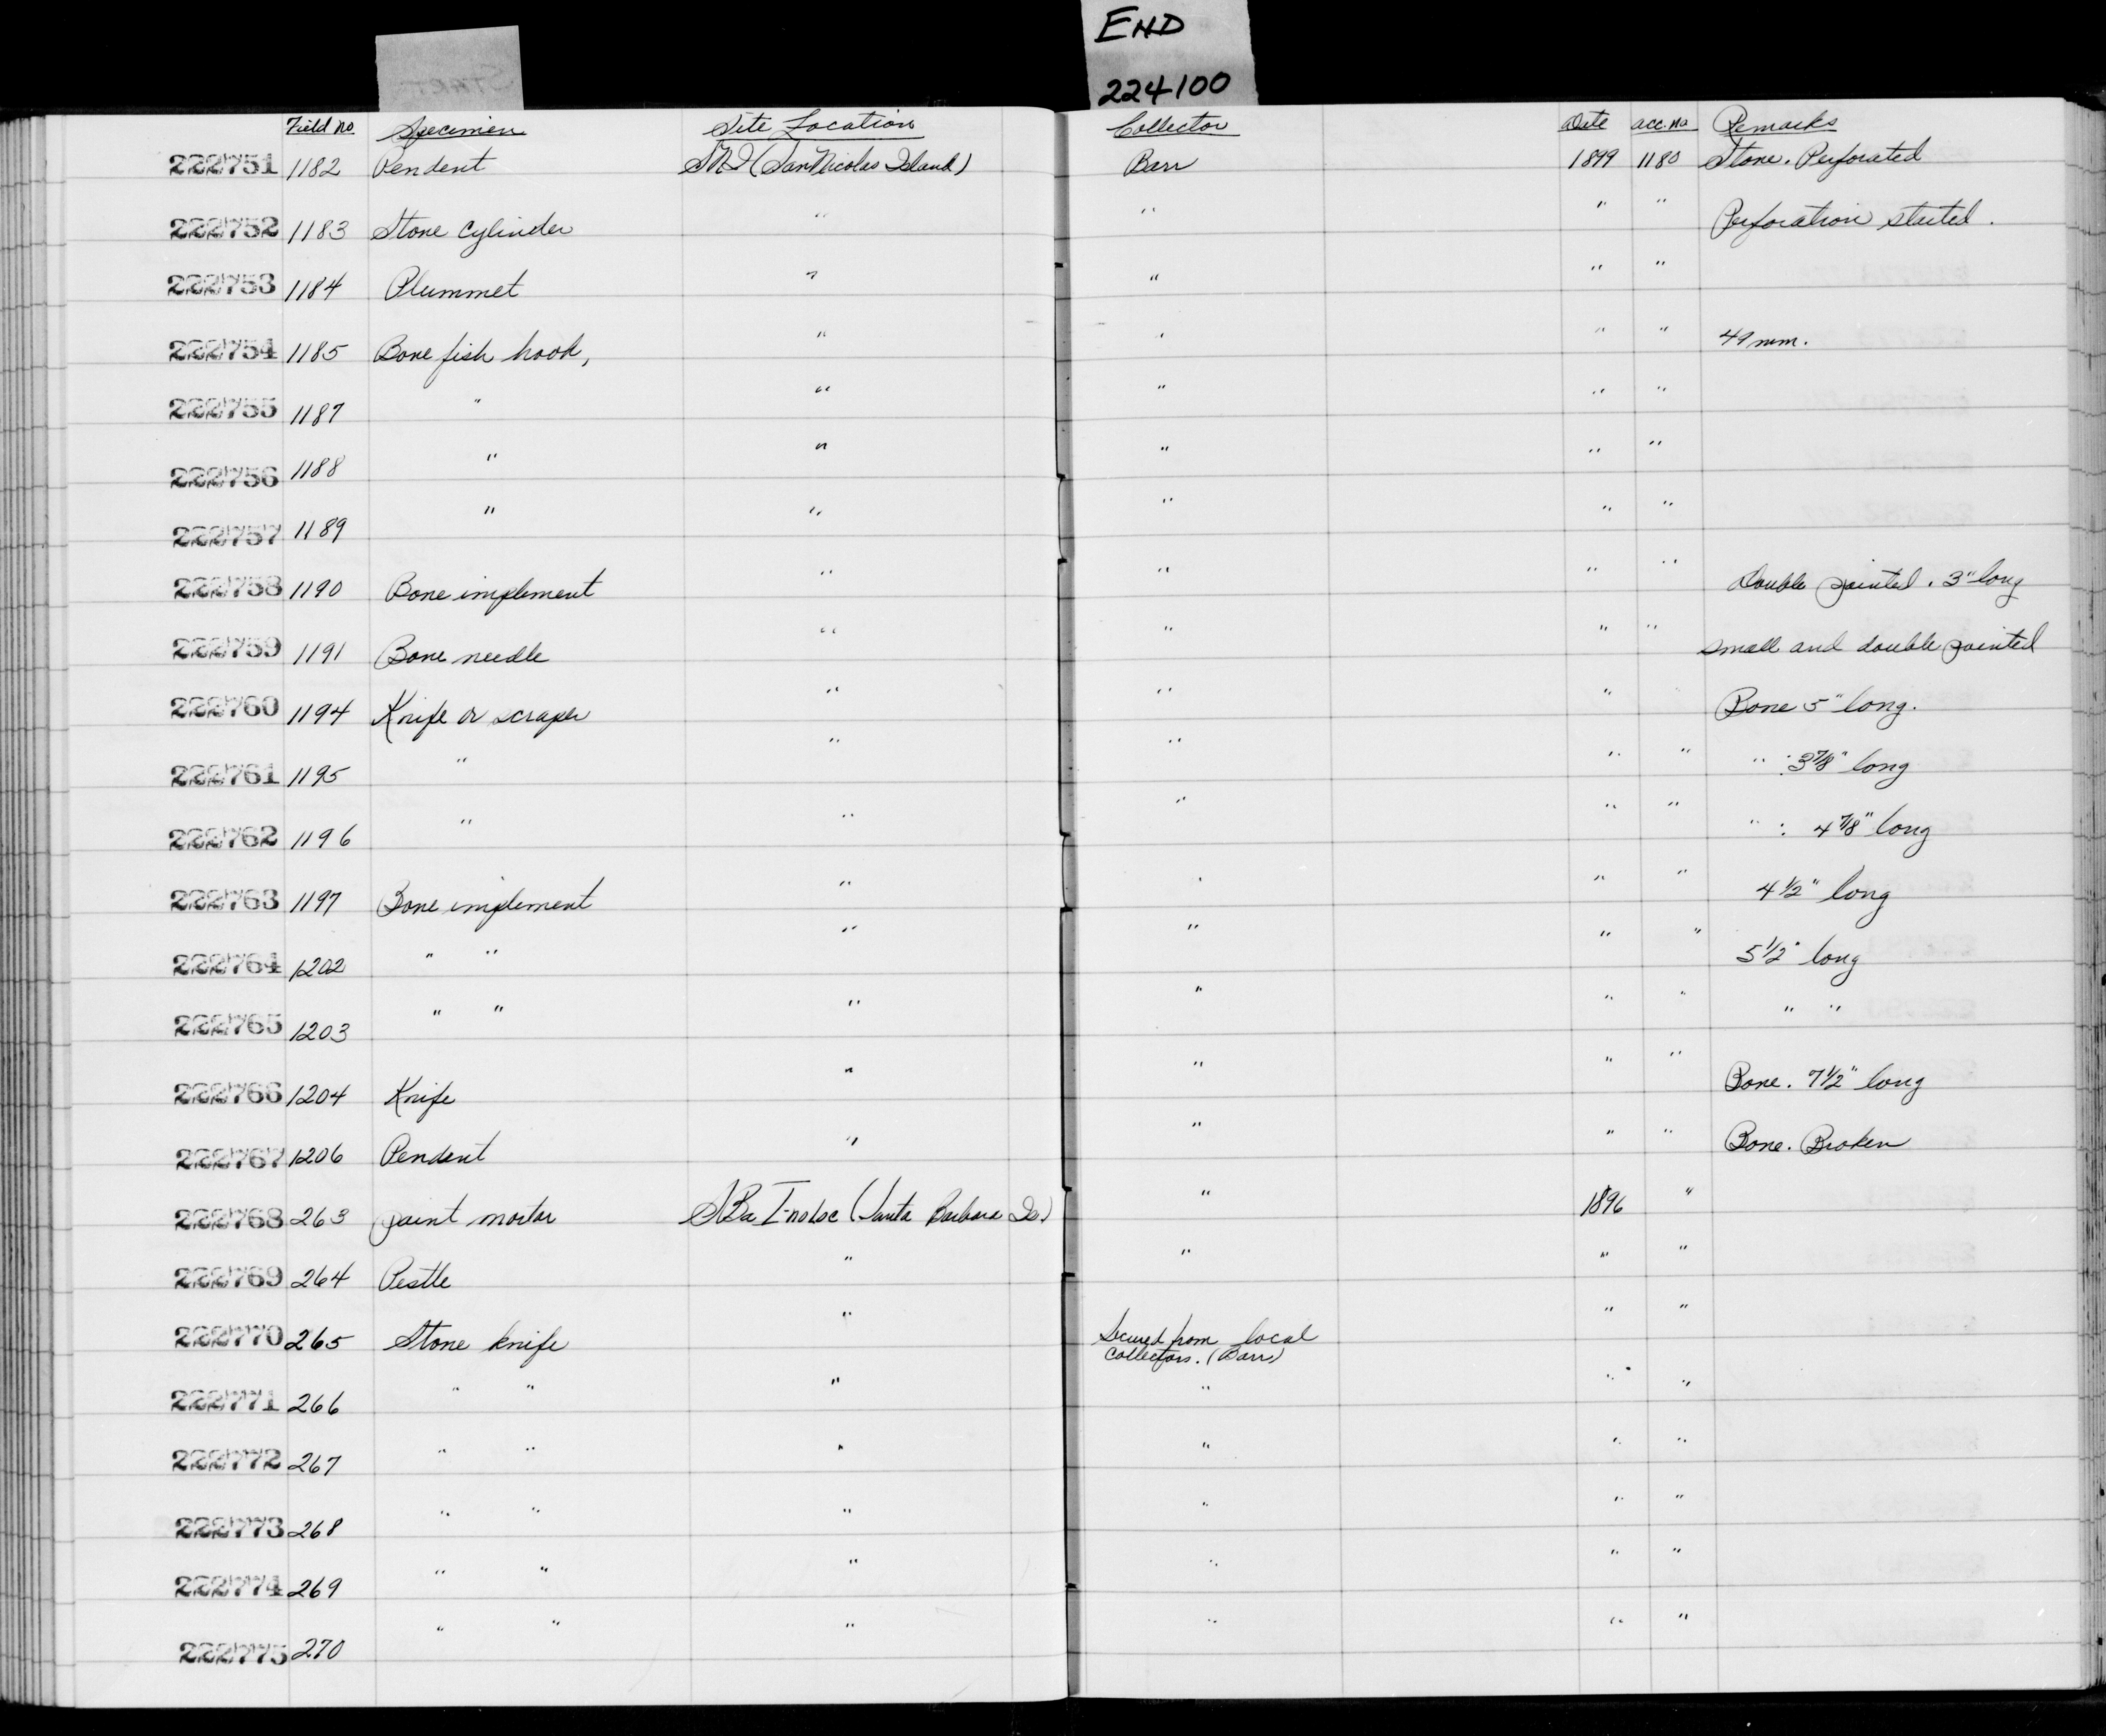 END
224100
START
Field no. Specimen Site Location Collector Date acc. no Remarks
222751 1182 Pendent SNI (San Nicolas Island) Barr 1899 1180 Stone. Perforated
222752 1183 Stone cylinder " " " " Perforation started.
222753 1184 Plummet " " " "
222754 1185 Bone fish hook, " " " " 49 mm.
222755 1187 " " " " "
222756 1188 " " " " "
222757 1189 " " " " "
222758 1190 Bone implement " " " " Double pointed. 3" long
222759 1191 Bone needle " " " " small and double pointed
222760 1194 Knife or scraper " " " Bone 5" long.
222761 1195 " " " " " " : 3 7/8" long
222762 1196 " " " " " " : 4 7/8" long
222763 1197 Bone implement " " " " 4 1/2" long
222764 1202 " " " " " " 5 1/2" long
222765 1203 " " " " " " " "
222766 1204 Knife " " " " Bone. 7 1/2" long
222767 1206 Pendent " " " " Bone. Broken
222768 263 paint mortar SBa I-no loc (Santa Barbara Is.) " 1896 "
222769 264 Pestle " " " "
222770 265 Stone knife " Secured from local " "
collectors. (Barr)
222771 266 " " " " " "
222772 267 " " " " " "
222773 268 " " " " " "
222774 269 " " " " " "
222775 270 " " " " " "